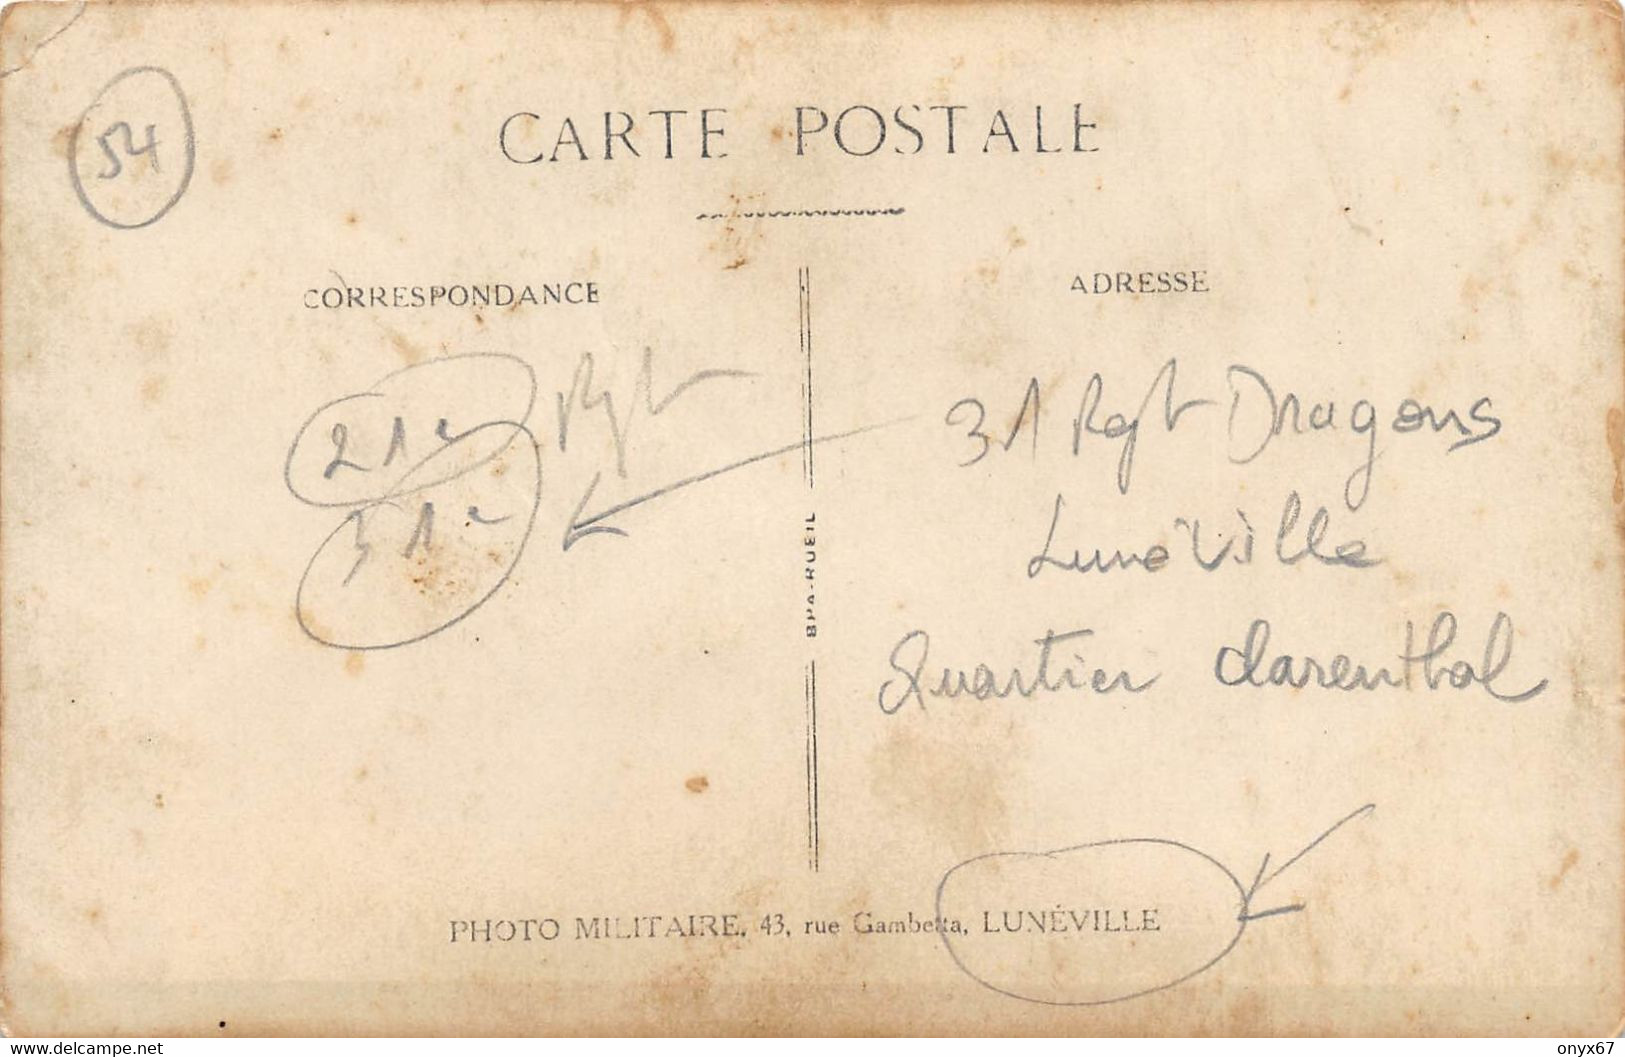 54
CARTE POSTALE
CORRESPONDANCE
ADRESSE
21e Rgt
31e
31 Regt Dragons
Lunéville
Quartier Clarenthal
BHA-RUEIL
PHOTO MILITAIRE, 43, rue Gambetta, LUNÉVILLE
delcampe.net
onyx67